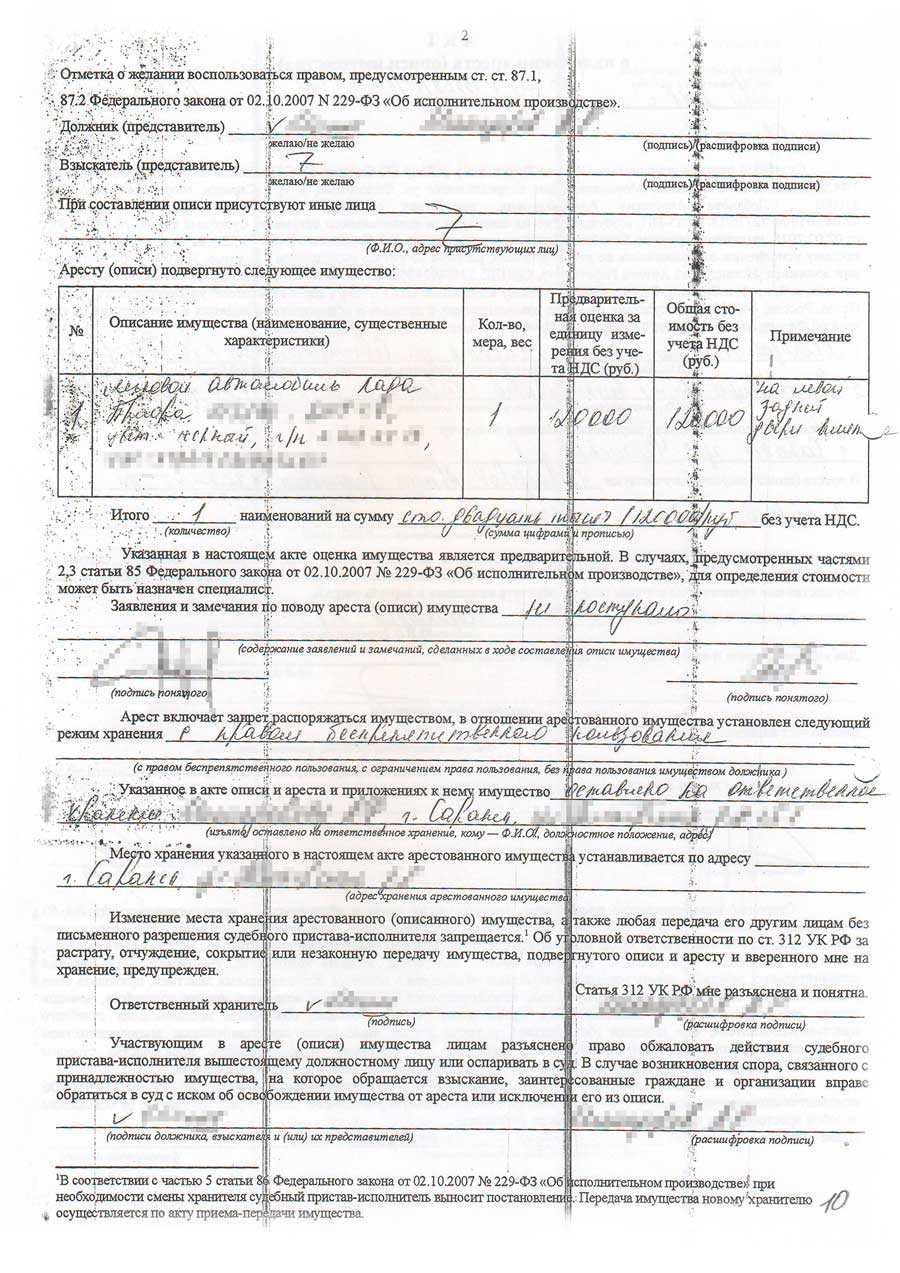 2
Отметка о желании воспользоваться правом, предусмотренным ст. ст. 87.1,
87.2 Федерального закона от 02.10.2007 N 229-ФЗ «Об исполнительном производстве».
Должник (представитель)
желаю/не желаю (подпись)/(расшифровка подписи)
Взыскатель (представитель)
желаю/не желаю (подпись)/(расшифровка подписи)
При составлении описи присутствуют иные лица
(Ф.И.О., адрес присутствующих лиц)
Аресту (описи) подвергнуто следующее имущество:
№ Описание имущества (наименование, существенные характеристики) Кол-во, мера, вес Предварительная оценка за единицу измерения без учета НДС (руб.) Общая стоимость без учета НДС (руб.) Примечание
1 легковой автомобиль Лада 1 120000 120000 на левой
Приора задней
цвет черный, г/н двери
Итого 1 наименований на сумму сто двадцать тысяч /120000/руб без учета НДС.
(количество) (сумма цифрами и прописью)
Указанная в настоящем акте оценка имущества является предварительной. В случаях, предусмотренных частями
2,3 статьи 85 Федерального закона от 02.10.2007 № 229-ФЗ «Об исполнительном производстве», для определения стоимости
может быть назначен специалист.
Заявления и замечания по поводу ареста (описи) имущества не поступало
(содержание заявлений и замечаний, сделанных в ходе составления описи имущества)
(подпись понятого (подпись понятого)
Арест включает запрет распоряжаться имуществом, в отношении арестованного имущества установлен следующий
режим хранения с правом беспрепятственного пользования
(с правом беспрепятственного пользования, с ограничением права пользования, без права пользования имуществом должника)
Указанное в акте описи и ареста и приложениях к нему имущество оставлено на ответственное
хранение г. Саранск,
(изъято/ оставлено на ответственное хранение, кому — Ф.И.О., должностное положение, адрес)
Место хранения указанного в настоящем акте арестованного имущества устанавливается по адресу
г. Саранск,
(адрес хранения арестованного имущества)
Изменение места хранения арестованного (описанного) имущества, а также любая передача его другим лицам без
письменного разрешения судебного пристава-исполнителя запрещается.¹ Об уголовной ответственности по ст. 312 УК РФ за
растрату, отчуждение, сокрытие или незаконную передачу имущества, подвергнутого описи и аресту и вверенного мне на
хранение, предупрежден.
Статья 312 УК РФ мне разъяснена и понятна.
Ответственный хранитель
(подпись) (расшифровка подписи)
Участвующим в аресте (описи) имущества лицам разъяснено право обжаловать действия судебного
пристава-исполнителя вышестоящему должностному лицу или оспаривать в суд. В случае возникновения спора, связанного с
принадлежностью имущества, на которое обращается взыскание, заинтересованные граждане и организации вправе
обратиться в суд с иском об освобождении имущества от ареста или исключении его из описи.
(подписи должника, взыскателя и (или) их представителей) (расшифровка подписи)
¹В соответствии с частью 5 статьи 86 Федерального закона от 02.10.2007 № 229-ФЗ «Об исполнительном производстве» при
необходимости смены хранителя судебный пристав-исполнитель выносит постановление. Передача имущества новому хранителю
осуществляется по акту приема-передачи имущества.
10